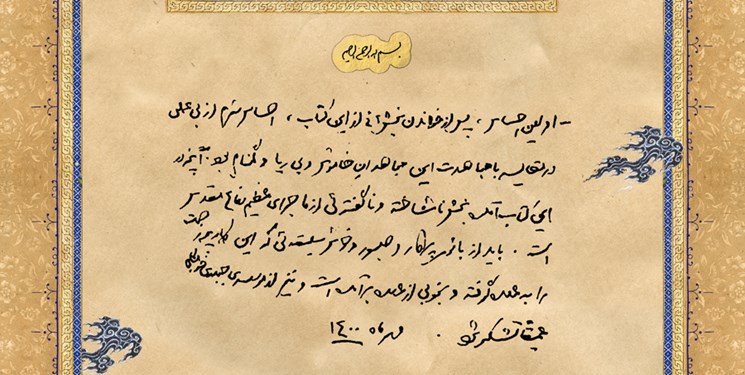 بسم الله الرحمن الرحیم
- اولین احساس، پس از خواندن بخشهائی از این کتاب، احساس شرم از بی‌عملی
در مقایسه با مجاهدت این مجاهدان خاموش و بی ریا و گمنام بود. آنچه در
این کتاب آمده بخش ناشناخته و ناگفته‌ئی از ماجرای عظیم دفاع مقدس
است. باید از بانوی پرکار و صبور و خوش سلیقه‌ئی که این کار پرزحمت
را به عهده گرفته و بخوبی از عهده برآمده است و نیز از موسسه‌ی جبهه‌ی
عمیقاً تشکر شود. مهرماه ۱۴۰۰